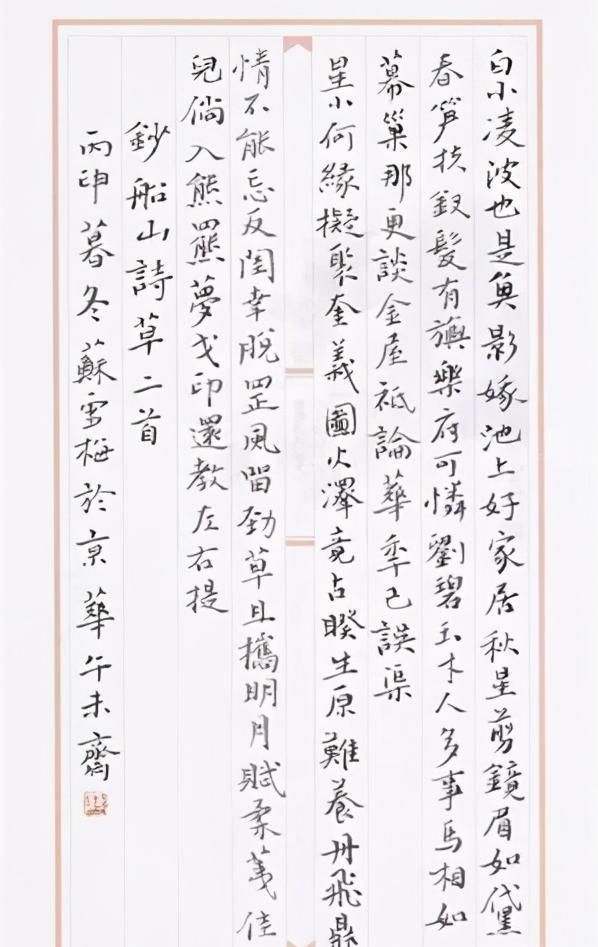 白小凌波也是魚影娥池上好家居秋星剪鏡眉如黛
春笋扶釵髮有旟樂府可憐劉碧玉木人多事馬相如
幕巢那更談金屋祗論華年已誤渠
星小何緣擬聚奎義圖火澤竟占睽生原難養丹飛鼎
情不能忘反閨幸脫罡風留勁草且攜明月賦柔荑佳
兒倘入熊羆夢弋印還教左右提
鈔船山詩草二首
丙申暮冬蘇雪梅於京華午未齋